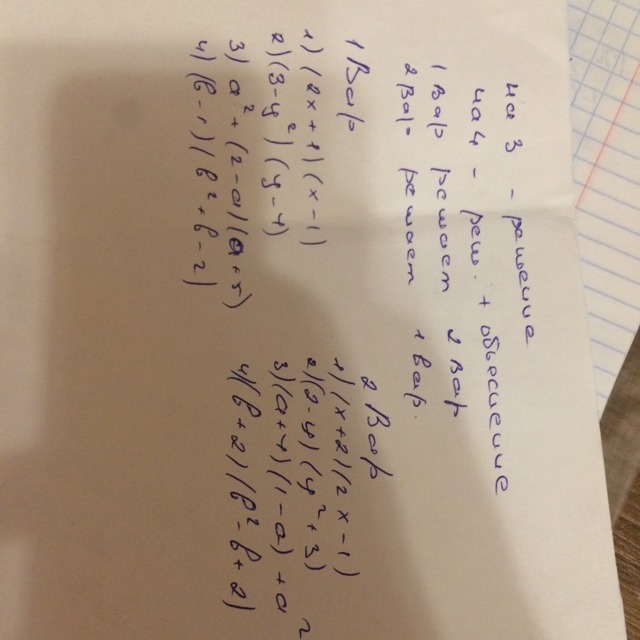 на 3 - решение
на 4 - реш. + объяснение
1 Вар решает 2 Вар
2 Вар решает 1 Вар.
1 Вар
1) (2x+1)(x-1)
2) (3-y²)(y-4)
3) a²+(2-a)(a+5)
4) (b-1)(b²+b-2)
2 Вар
1) (x+2)(2x-1)
2) (2-y)(y²+3)
3) (a+4)(1-a)+a²
4) (b+2)(b²-b+2)